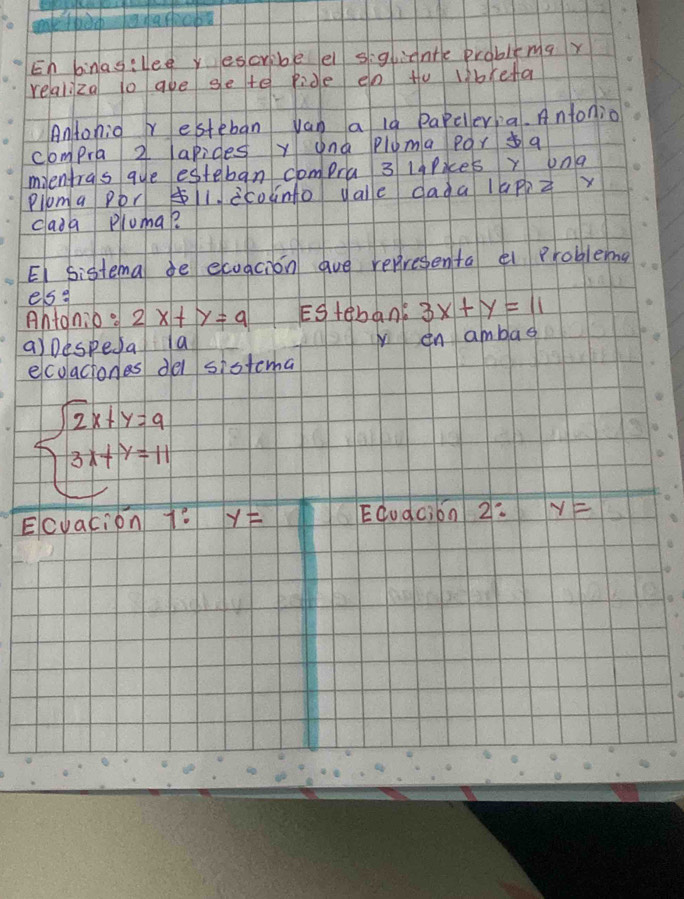 metodo grafico:
En binas: Lee y escribe el siguiente problema y
realiza lo que se te pide en tu libreta
Antonio y esteban van a la Papeleria. Antonio
compra 2 lapices y una pluma por $9
mientras que esteban compra 3 lapices y una
pluma por $11. ¿couánto vale cada lapiz y
cada pluma?
El sistema de ecuación que representa el problema
es:
Antonio: 2x+y=9 Esteban: 3x+y=11
a) Despeja la y en ambas
ecuaciones del sistema
2x+y=9
3x+y=11
Ecuación 1: y= Ecuación 2: y=